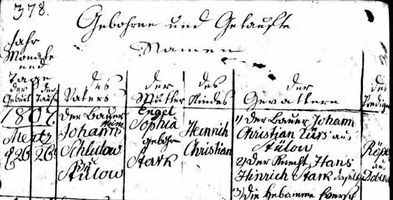 378.
Gebohrne und Getaufte
Namen
Jahr
Monathe
und
Tage
der Geburt
der Taufe
des
Vaters
der
Mutter
des
Kindes
der
Gevattern
der
1807
Mertz
826
26
der Bauer
Johann
Schlutow
zu
Sülow
Engel
Sophia
gebohrne
Stark
Heinrich
Christian
1) der Bauer Johann
Christian Lürs aus
Sülow
2) der Knecht Hans
Hinrich Stark
3) die Hebamme